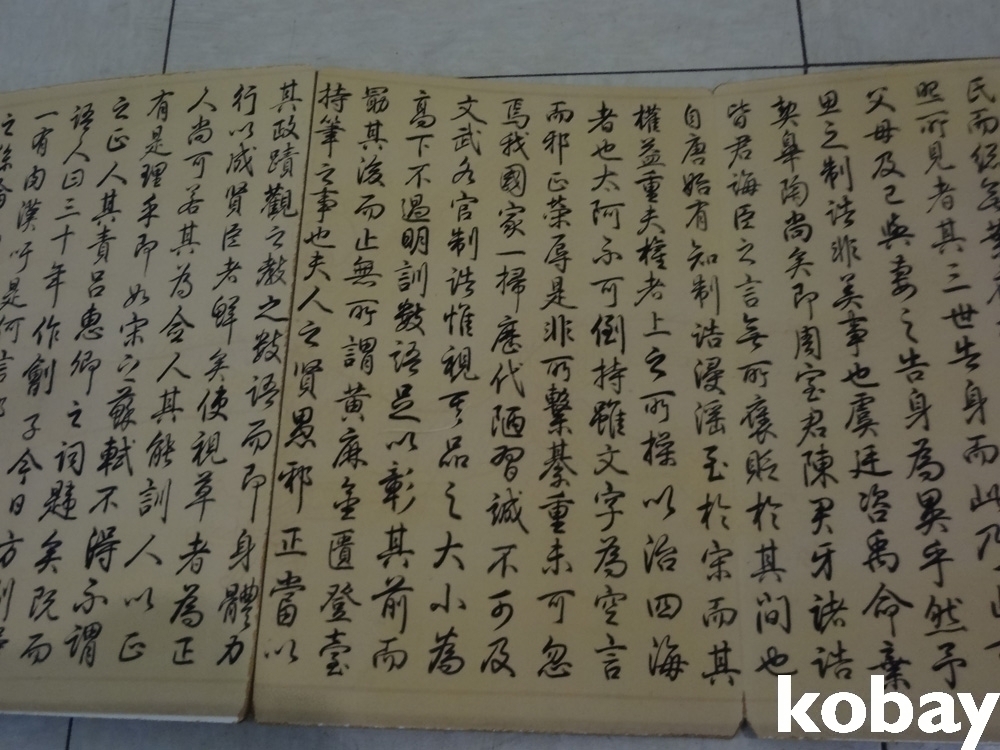 民而
照所見者其三世告身而此乃
父母及己與妻之告身為異乎然予
思之制誥非美事也虞廷咨禹命棄
契皋陶尚矣即周室君陳君牙諸誥
皆君誨臣之言無所褒貶於其間也
自唐始有知制誥浸淫至於宋而其
權益重夫權者上之所操以治四海
者也太阿不可倒持雖文字為空言
而邪正榮辱是非所繫綦重未可忽
焉我國家一掃歷代陋習誠不可及
文武各官制誥惟視其品之大小為
高下不過明訓數語足以彰其前而
勗其後而止無所謂黃麻金匱登臺
持筆之事也夫人之賢愚邪正當以
其政蹟觀之教之數語而即身體力
行以成賢臣者鮮矣使視草者為正
人尚可若其為僉人其能訓人以正
有是理乎即如宋之蘇軾不得不謂
之正人其責呂惠卿之詞韙矣既而
語人曰三十年作劊子今日方剮
一有肉漢吁是何言
之
kobay